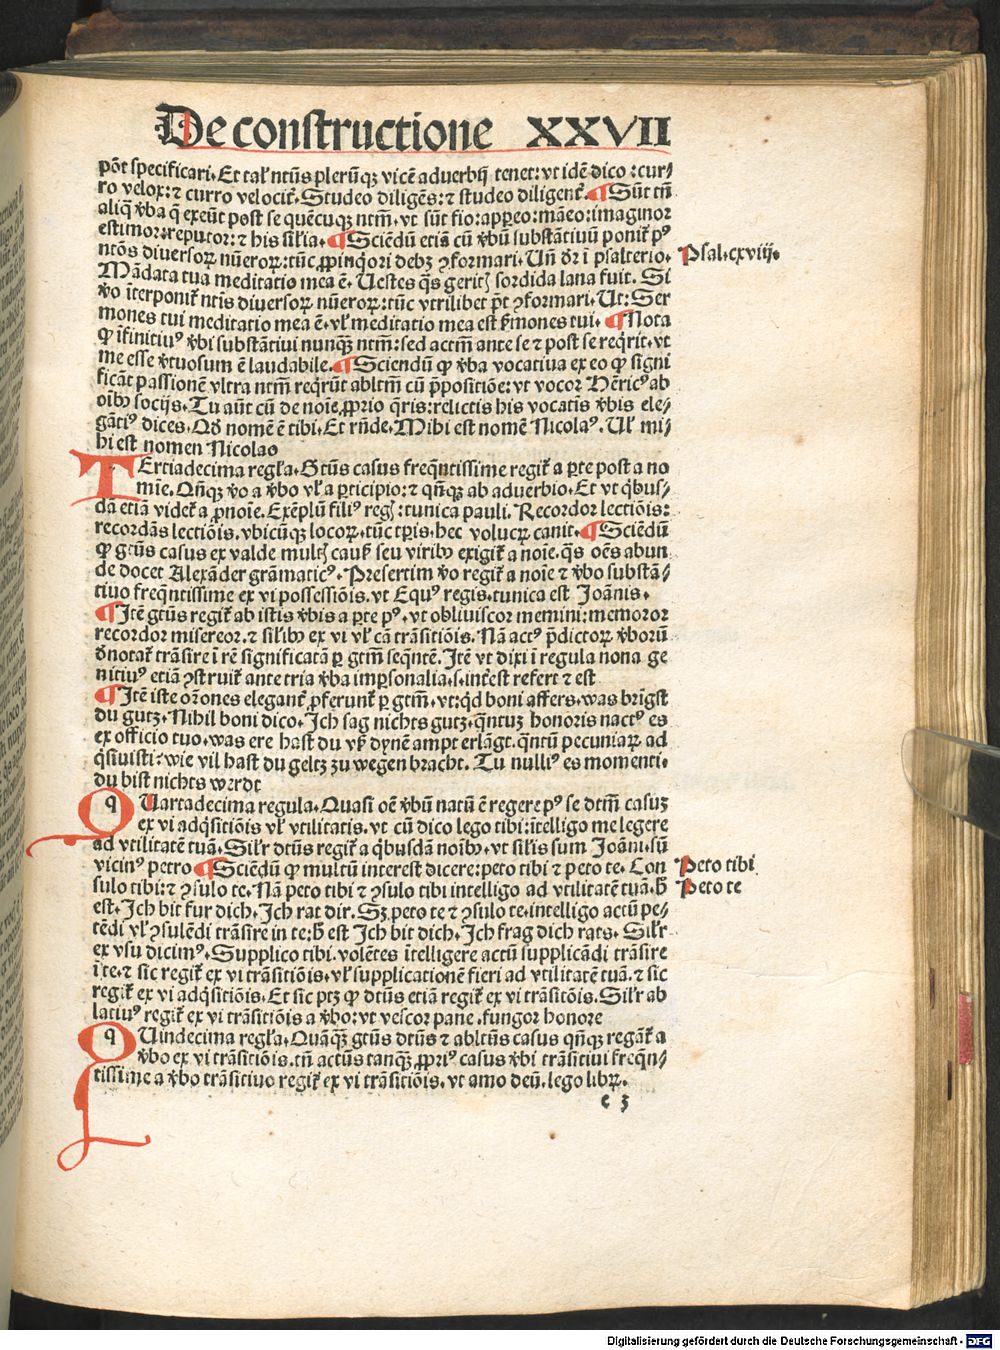 De constructione XXVII
põt specificari. Et tal' ntũs plerũqꝫ vicẽ aduerbij tenet: vt idẽ dico: cur⸗
ro velox: ⁊ curro velocit̃. Studeo diligẽs: ⁊ studeo diligent̃. ¶ Sũt tñ
aliq̃ v̾ba q̃ exeũt post se quẽcuqꝫ ntm̃. vt sũt fio: appeo: maneo: imaginor
estimor: reputor: ⁊ his silia. ¶ Sciendũ etiã cũ v̾bũ substãtiuũ ponit̃ pꝰ
ntõs diuersoꝝ nũeroꝝ: tũc ꝓpinq̃ori debꝫ ꝯformari. Uñ dr̃ ĩ psalterio.
Psal. cxviij.
Mãdata tua meditatio mea ẽ. Uestes q̃s gerit; sordida lana fuit. Si
v̾o ĩterponit̃ ntĩs diuersoꝝ nũeroꝝ: tũc vtrilibet põt ꝯformari. Ut: Ser
mones tui meditatio mea ẽ. vl' meditatio mea est s̃mones tui. ¶ Nota
ꝙ ĩfinitiuꝰ v̾bi substãtiui nunqꝫ ntm̃: sed actm̃ ante se ⁊ post se req̃rit. vt
me esse v̾tuosum ẽ laudabile. ¶ Sciendũ ꝙ v̾ba vocatiua ex eo ꝙ signi
ficãt passionẽ vltra ntm̃ req̃rũt abltm̃ cũ p̃positiõe: vt vocor Hẽricꝰ ab
oĩbꝰ socijs. Tu aũt cũ de noĩe ꝓprio q̃ris: relictis his vocatĩs v̾bis ele⸗
gãtiꝰ dices. Qd̾ nomẽ ẽ tibi. Et rñde. Mihi est nomẽ Nicolaꝰ. Ul' mi⸗
hi est nomen Nicolao
TErtiadecima regl'a. Gtũs casus freq̃ntissime regit̃ a p̱te post a no
mĩe. Qñqꝫ v̾o a v̾bo vl' a p̱ticipio: ⁊ qñqꝫ ab aduerbio. Et vt q̃bus⸗
dã etiã videt̃ a ꝓnoĩe. Exẽplũ filiꝰ regꝭ: tunica pauli. Recordor lectiõis:
recordãs lectiõis. vbicũqꝫ locoꝝ. tũc tꝑis. hec volucꝝ canit. ¶ Sciẽdũ
ꝙ gtũs casus ex valde multꝭ causꝭ seu viribꝰ exigit̃ a noĩe. q̃s oẽs abun
de docet Alexãder grãmaticꝰ. Presertim v̾o regit̃ a noĩe ⁊ v̾bo substã⸗
tiuo freq̃ntissime ex vi possessiõis. vt Equꝰ regis. tunica est Joãnis.
¶ Itẽ gtũs regit̃ ab istis v̾bis a p̱te pꝰ. vt obliuiscor memini: memoror
recordor misereor. ⁊ silibꝰ ex vi vl' cã trãsitiõis. Nã actꝰ p̃dictoꝝ v̾borũ
d̾notat̃ trãsire ĩ rẽ significatã ꝑ gtm̃ seq̃ntẽ. Itẽ vt dixi ĩ regula nona ge
nitiuꝰ etiã ꝯstruit̃ ante tria v̾ba imꝑsonalia. s. int̾est refert ⁊ est
¶ Itẽ iste or̃ones elegant̃ ꝓferunt̃ ꝑ gtm̃. vt: q̃d boni affers. was brĩgst
du gutz. Nihil boni dico. Ich sag nichts gutz. q̃ntuꝫ honoris nactꝰ es
ex officio tuo. was ere hast du vs̃ dynẽ ampt erlãgt. q̃ntũ pecuniaꝝ ad
q̃siuisti? wie vil hast du geltz zu wegen bracht. Tu nulliꝰ es momenti.
du bist nichts werdt
QUartadecima regula. Quasi oẽ v̾bũ natũ ẽ regere pꝰ se dtm̃ casuꝫ
ex vi adq̃sitiõis vl' vtilitatis. vt cũ dico lego tibi: ĩtelligo me legere
ad vtilitatẽ tuã. Sil'r dtũs regit̃ a q̃busdã noĩbꝰ. vt silis sum Joãni. sũ
vicinꝰ petro ¶ Sciẽdũ ꝙ multũ interest dicere: peto tibi ⁊ peto te. Con
Peto tibi
sulo tibi: ⁊ ꝯsulo te. Nã peto tibi ⁊ ꝯsulo tibi intelligo ad vtilitatẽ tuã. h̾
Peto te
est. Ich bit fur dich. Ich rat dir. Sꝫ peto te ⁊ ꝯsulo te. intelligo actũ pe⸗
tẽdi vl' ꝯsulẽdi trãsire in te: h̾ est Ich bit dich. Ich frag dich rats. Sil'r
ex vsu dicimꝰ. Supplico tibi. volẽtes ĩtelligere actũ supplicãdi trãsire
ĩ te. ⁊ sic regit̃ ex vi trãsitiõis. vl' supplicationẽ fieri ad vtilitatẽ tuã. ⁊ sic
regit̃ ex vi adq̃sitiõis. Et sic ptꝫ ꝙ dtũs etiã regit̃ ex vi trãsitiõis. Sil'r ab
latiuꝰ regit̃ ex vi trãsitiõis a v̾bo: vt vescor pane. fungor honore
QUindecima regl'a. Quãqꝫ gtũs dtũs ⁊ abltũs casus qñqꝫ regãt̃ a
v̾bo ex vi trãsitiõis. tñ actũs tanqꝫ ꝓpriꝰ casus v̾bi trãsitiui freq̃n⸗
tissime a v̾bo trãsitiuo regit̃ ex vi trãsitiõis. vt amo deũ. lego libꝝ.
c 3
Digitalisierung gefördert durch die Deutsche Forschungsgemeinschaft - DFG